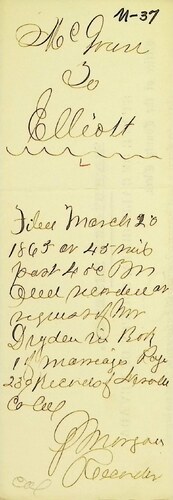 M-37
McGrau
To
Elliott
Filed March 20
1865 at 45 min
past 4 oc PM
and recorded at
request of Mr
Dryden in Book
1 of marriages Page
230 Records of
Co Cal
J Morgan
Recorder
Col